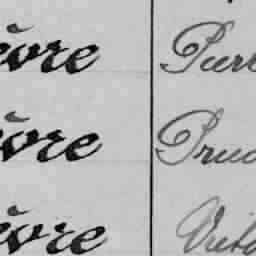 èvre Pierr
èvre Prud
èvre